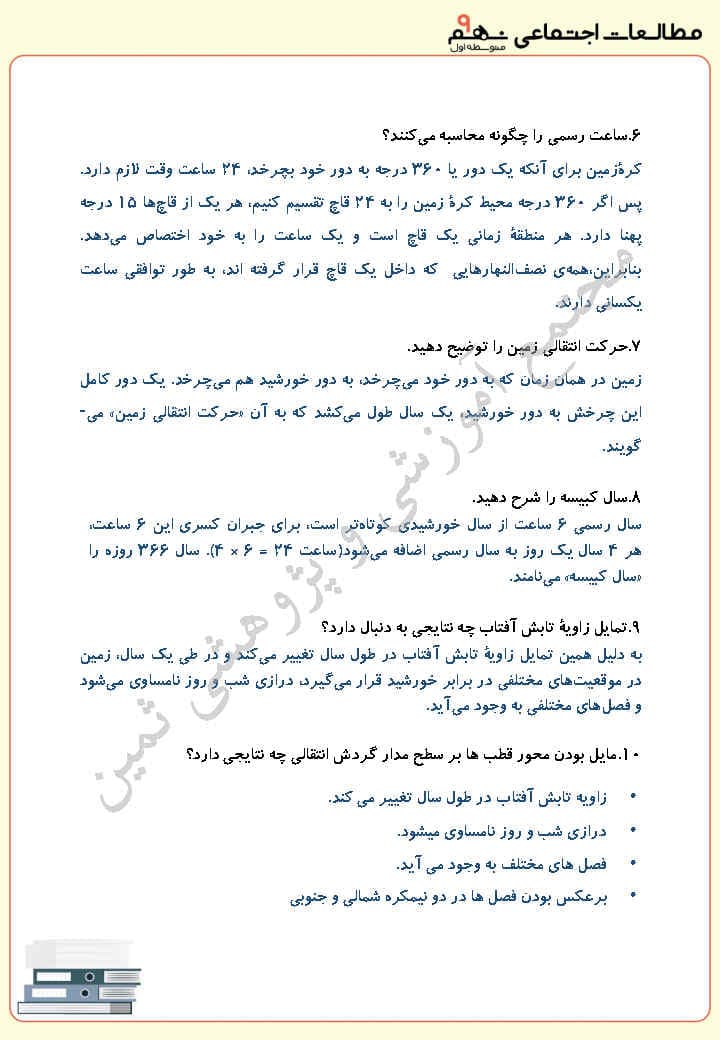 مطالعات اجتماعی نهم ۹
متوسطه اول
۶.ساعت رسمی را چگونه محاسبه می‌کنند؟
کرهٔ‌زمین برای آنکه یک دور یا ۳۶۰ درجه به دور خود بچرخد، ۲۴ ساعت وقت لازم دارد.
پس اگر ۳۶۰ درجه محیط کرهٔ زمین را به ۲۴ قاچ تقسیم کنیم، هر یک از قاچ‌ها ۱۵ درجه
پهنا دارد. هر منطقهٔ زمانی یک قاچ است و یک ساعت را به خود اختصاص می‌دهد.
بنابراین،همه‌ی نصف‌النهارهایی که داخل یک قاچ قرار گرفته اند، به طور توافقی ساعت
یکسانی دارند.
۷.حرکت انتقالی زمین را توضیح دهید.
زمین در همان زمان که به دور خود می‌چرخد، به دور خورشید هم می‌چرخد. یک دور کامل
این چرخش به دور خورشید، یک سال طول می‌کشد که به آن «حرکت انتقالی زمین» می-
گویند.
۸.سال کبیسه را شرح دهید.
سال رسمی ۶ ساعت از سال خورشیدی کوتاه‌تر است، برای جبران کسری این ۶ ساعت،
هر ۴ سال یک روز به سال رسمی اضافه می‌شود(ساعت ۲۴ = ۶ × ۴). سال ۳۶۶ روزه را
«سال کبیسه» می‌نامند.
۹.تمایل زاویهٔ تابش آفتاب چه نتایجی به دنبال دارد؟
به دلیل همین تمایل زاویهٔ تابش آفتاب در طول سال تغییر می‌کند و در طی یک سال، زمین
در موقعیت‌های مختلفی در برابر خورشید قرار می‌گیرد، درازی شب و روز نامساوی می‌شود
و فصل‌های مختلفی به وجود می‌آید.
۱۰.مایل بودن محور قطب ها بر سطح مدار گردش انتقالی چه نتایجی دارد؟
• زاویه تابش آفتاب در طول سال تغییر می کند.
• درازی شب و روز نامساوی میشود.
• فصل های مختلف به وجود می آید.
• برعکس بودن فصل ها در دو نیمکره شمالی و جنوبی
مجتمع آموزشی و پژوهشی ثمین